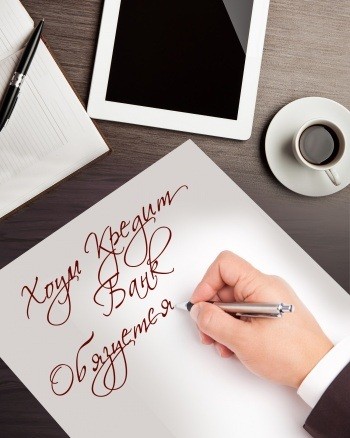 Хоум Кредит
Банк
Обязуется